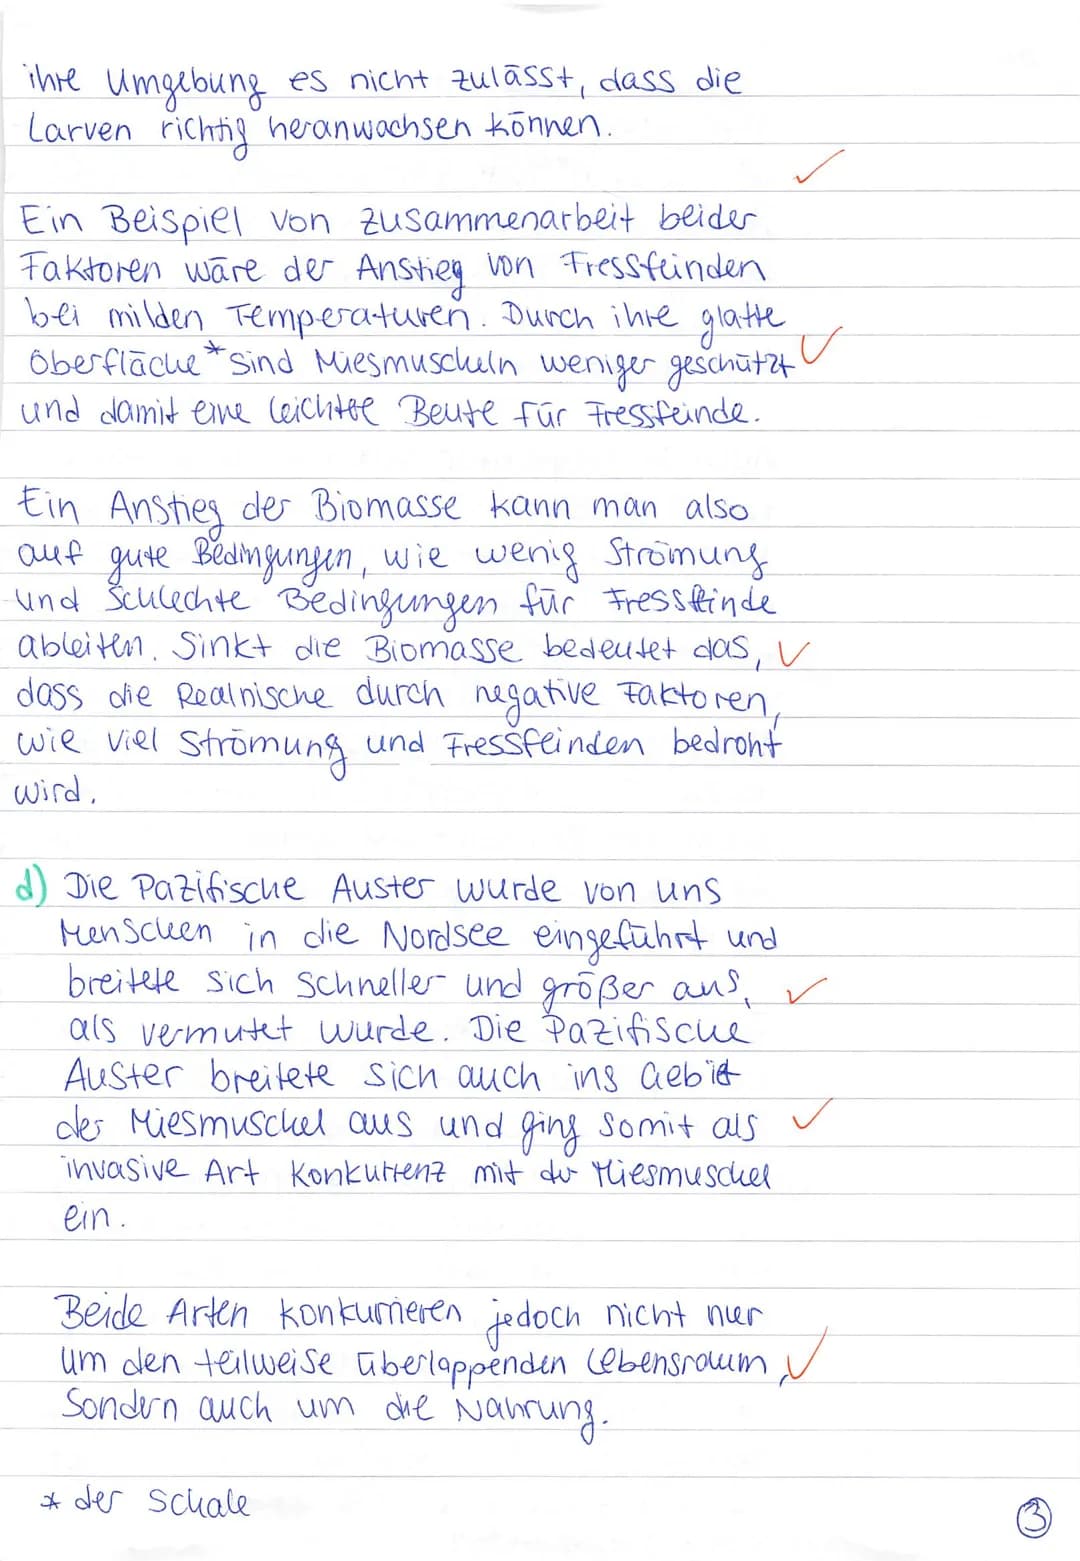 ihre Umgebung es nicht zulässt, dass die
Larven richtig heranwachsen können.
Ein Beispiel von Zusammenarbeit beider
Faktoren wäre der Anstieg von Fressfeinden
bei milden Temperaturen. Durch ihre glatte
Oberfläche * sind Miesmuscheln weniger geschützt
und damit eine leichtee Beute für Fressfeinde.
Ein Anstieg der Biomasse kann man also
auf gute Bedingungen, wie wenig Strömung
und schlechte Bedingungen für Fressfeinde
ableiten. Sinkt die Biomasse bedeutet das,
dass die Realnische durch negative Faktoren,
wie viel Strömung und Fressfeinden bedroht
wird.
d) Die Pazifische Auster wurde von uns
Menschen in die Nordsee eingeführt und
breitete sich schneller und größer aus,
als vermutet wurde. Die Pazifische
Auster breitete sich auch ins Gebiet
der Miesmuschel aus und ging somit als
invasive Art Konkurrenz mit der Miesmuschel
ein.
Beide Arten konkurrieren jedoch nicht nur
um den teilweise überlappenden Lebensraum,
sondern auch um die Nahrung.
* der Schale
3